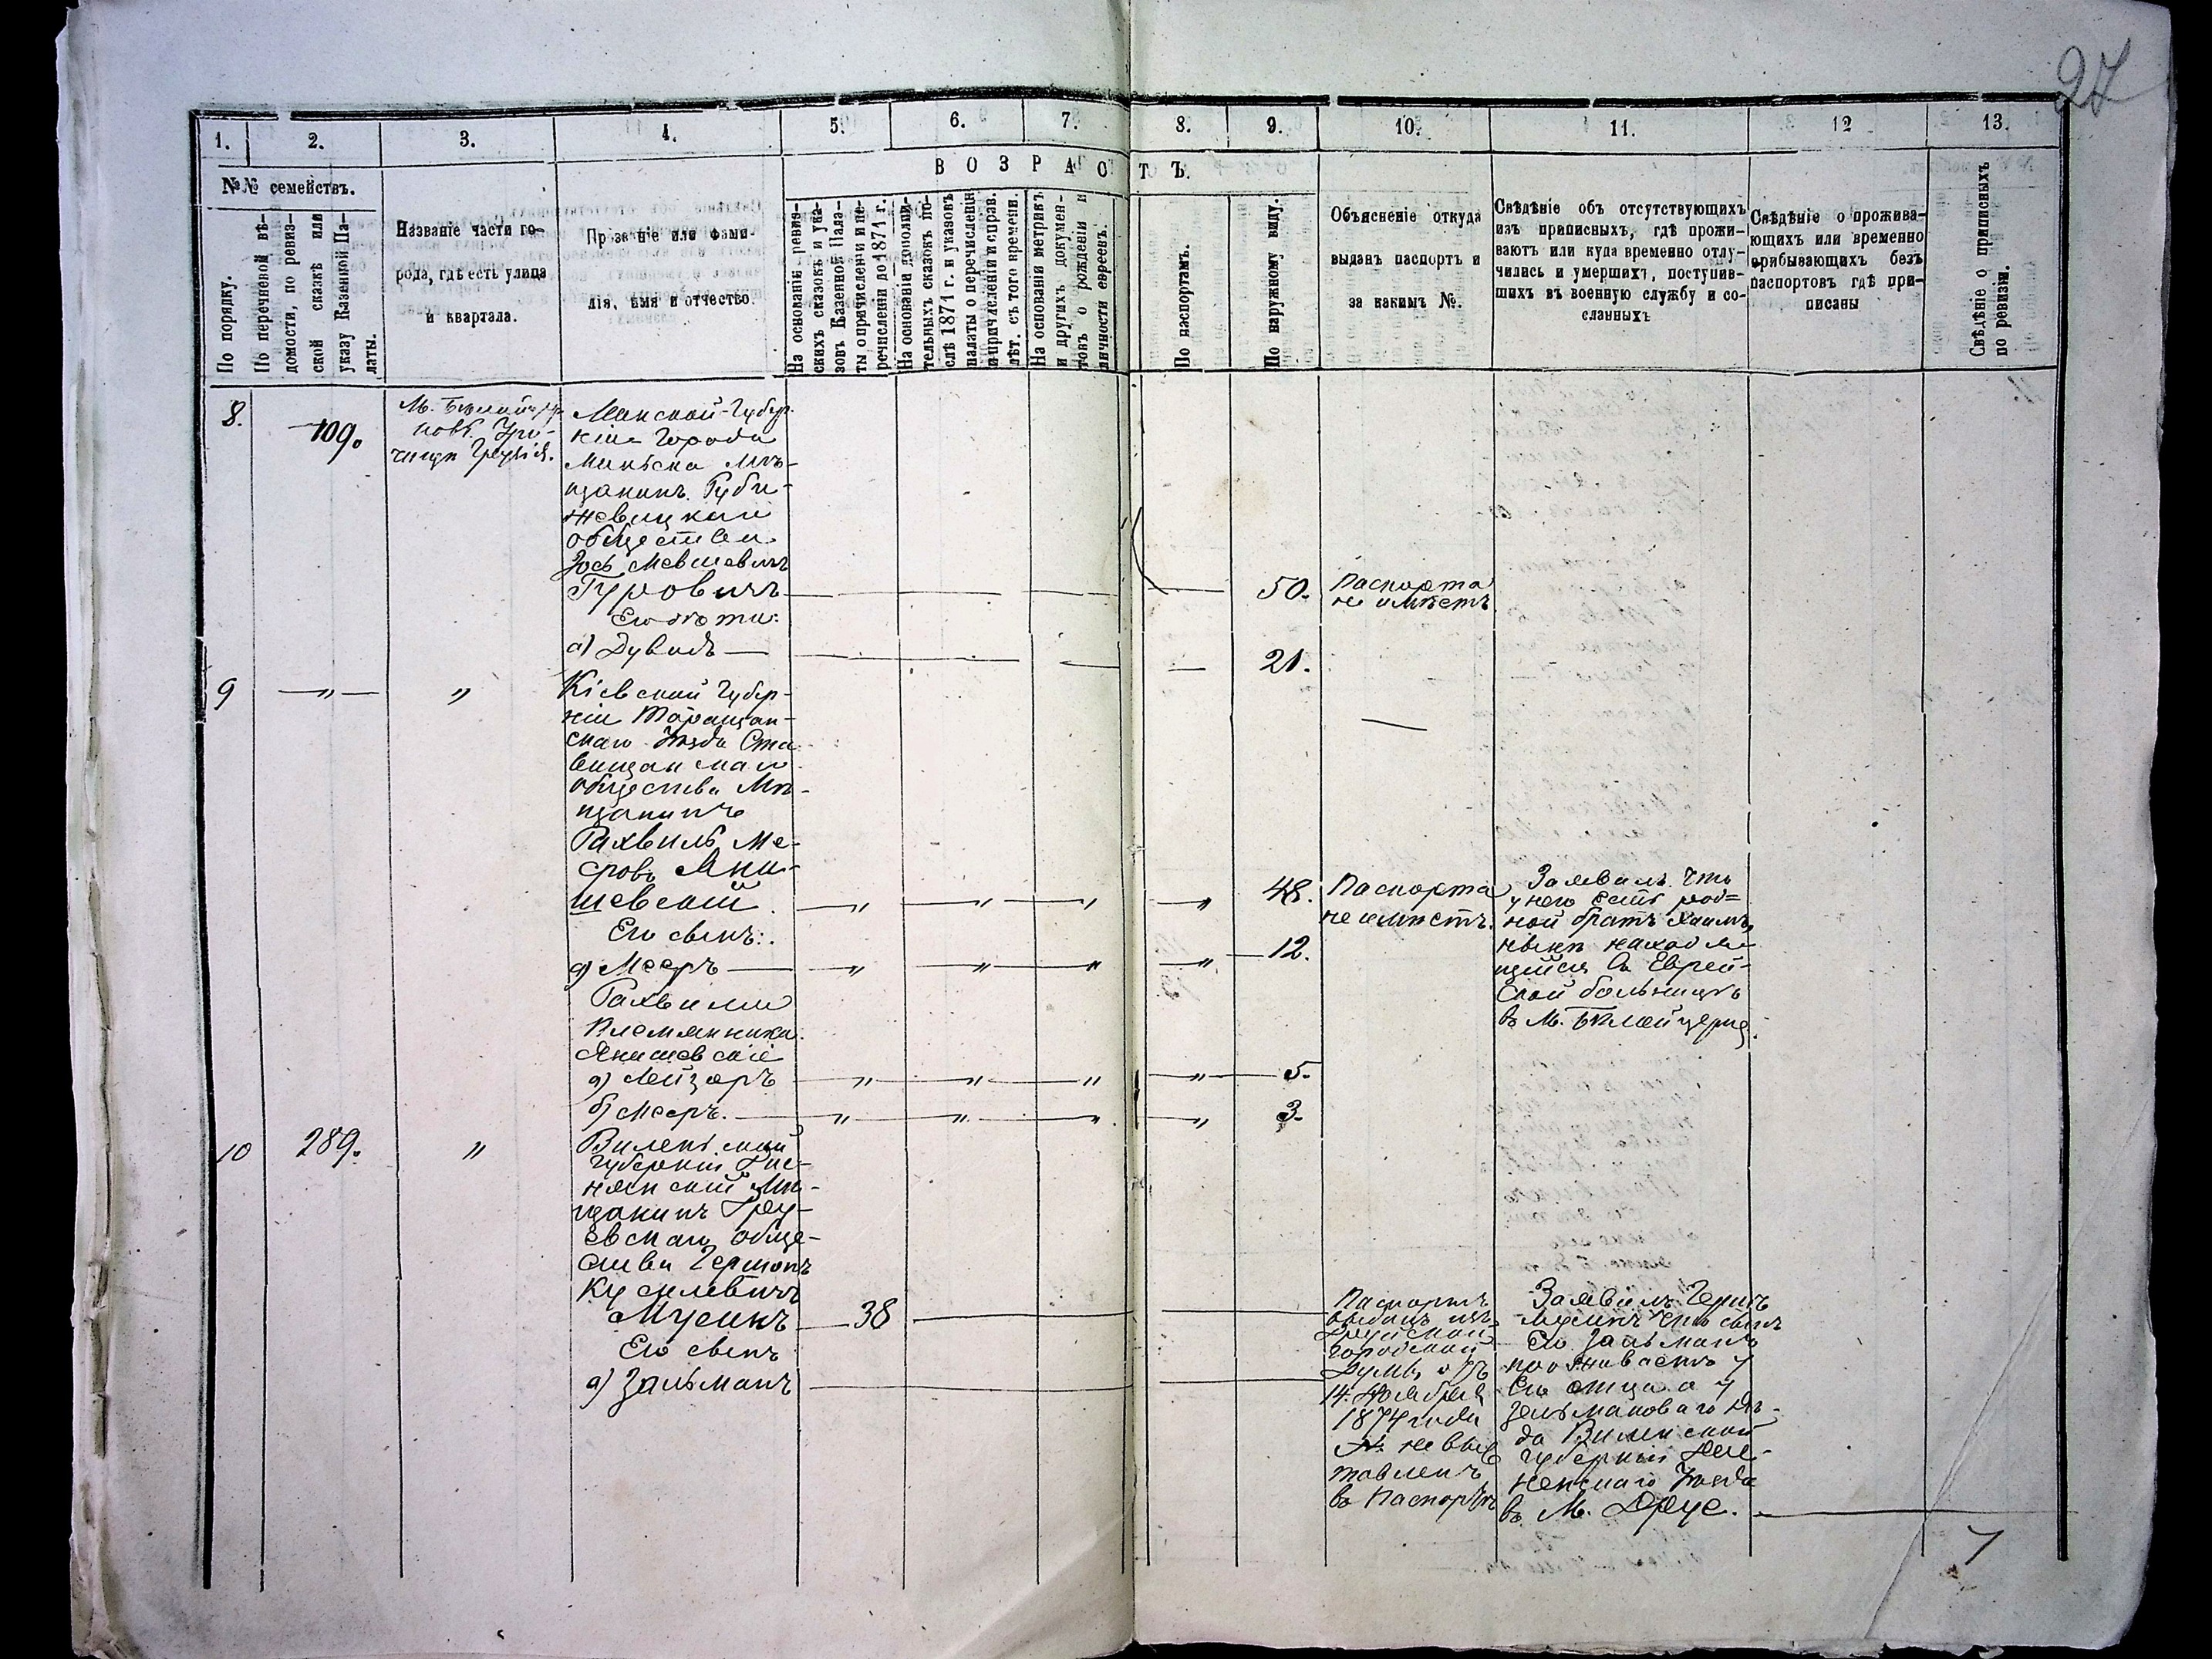 27
1. 2. 3. 4. 5. 6. 7. 8. 9. 10. 11. 12 13.
№№ семействъ.
По порядку.
По перечневой вѣ-
домости, по ревиз-
ской сказкѣ или
указу Казенной Па-
латы.
Названіе части го-
рода, гдѣ есть улица
и квартала.
Прозваніе или фами-
лія, имя и отчество.
ВОЗРАСТЪ.
На основаніи ревиз-
скихъ сказокъ и ука-
зовъ Казенной Пала-
ты о причисленіи и пе-
речисленіи до 1871 г.
На основаніи дополни-
тельныхъ сказокъ по-
слѣ 1871 г. и указовъ
палаты о перечисленіи
и причисленіи и справ.
лѣт. съ того времени.
На основаніи метрикъ
и другихъ докумен-
товъ о рожденіи и
личности евреевъ.
По паспортамъ.
По наружному виду.
Объясненіе откуда
выданъ паспортъ и
за какимъ №.
Свѣдѣніе объ отсутствующихъ
изъ приписныхъ, гдѣ прожи-
ваютъ или куда временно отлу-
чились и умершихъ, поступив-
шихъ въ военную службу и со-
сланныхъ
Свѣдѣніе о прожива-
ющихъ или временно
прибывающихъ безъ
паспортовъ гдѣ при-
писаны
Свѣдѣніе о приписныхъ
по ревизіи.
8.
109.
Минской Губер-
ніи Города
Минска Мѣ-
щанинъ
общества
Мевшевичъ
Гуровичъ
50.
Паспорта
не имѣетъ
Его дѣти:
а) Дувидъ
21.
9
"
"
Кіевской Губер-
ніи Таращан-
скаго Уѣзда Ста-
вищанскаго
общества Мѣ-
щанинъ
Рахвиль Ме-
еровъ Яни-
шевскій
" " " "
48.
Паспорта
не имѣетъ.
Его сынъ:
а) Мееръ
" " " "
12.
Рахвиля
Племянники
Янишевскіе
а) Лейзоръ
" " " "
5.
б) Мееръ.
" " " "
3.
Заявилъ что
у него есть род-
ной братъ Хаимъ,
нынѣ находя-
щійся въ Еврей-
ской больницѣ
въ М. Бѣлой церкв.
10
289.
"
Виленской
Губерніи Дис-
нянскій Мѣ-
щанинъ Друе-
вскаго обще-
ства Гершонъ
Кусилевичъ
Мусинъ
38
Его сынъ
а) Зальманъ
Паспортъ
выданъ изъ
Друйской
Городской
Думы отъ
14. Ноября
1874 года
№ не выс-
тавленъ
въ Паспортѣ
Заявилъ Гершъ
Мусинъ что сынъ
Его Зальманъ
проживаетъ у
Его отца а у
Зельмановаго дѣ-
да Виленской
Губерніи Дис-
ненскаго Уѣзда
въ М. Друе.
7